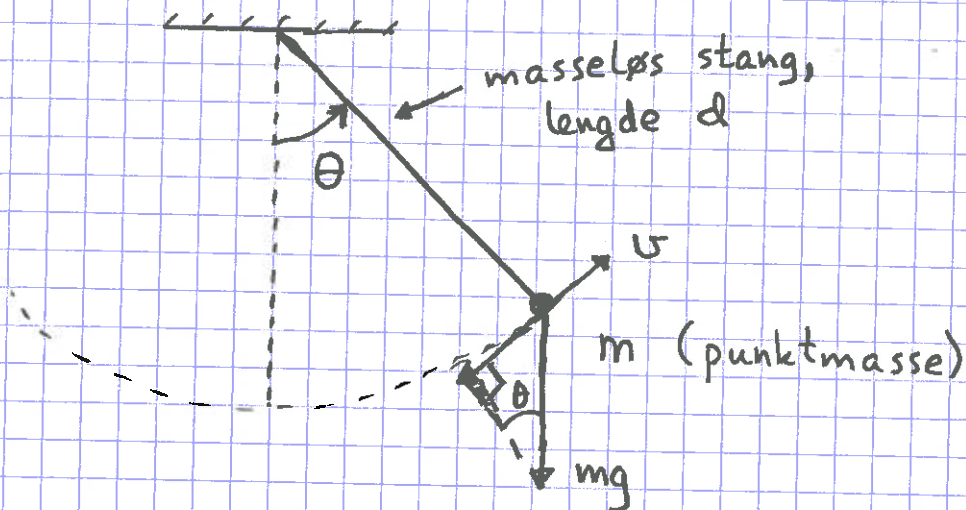 masseløs stang,
lengde d
θ
v
m (punktmasse)
θ
mg